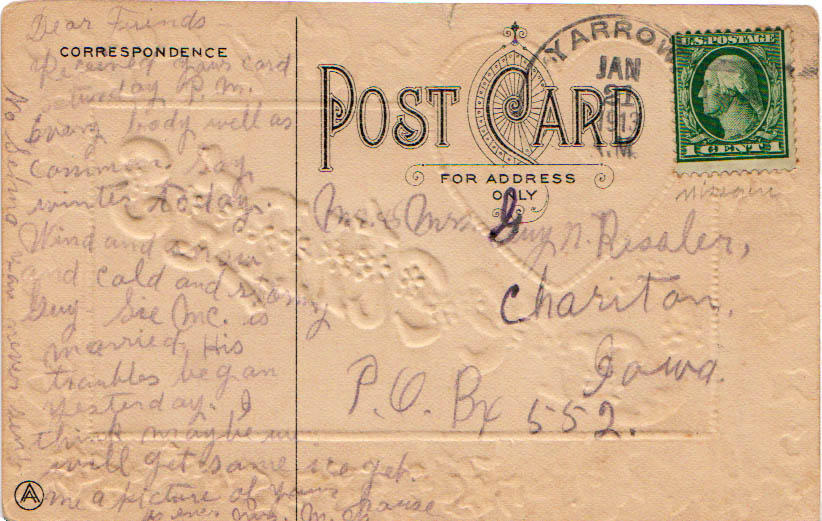 Dear Friends
CORRESPONDENCE
Received your card
saturday P.M.
every body well as
common. Say
winter today.
Wind and snow
and cold and stormy
Guy Sie Mc. is
married, His
troubles began
yesterday. I
think maybe we
will get some ice yet.
me a picture of your house
as ever Mrs. M.
No Selma you never sent
POST CARD
FOR ADDRESS
ONLY
YARROW
JAN
21
1913
.M.
U.S. POSTAGE
1 CENT 1
Missouri
Mr. & Mrs. Guy N. Ressler,
Chariton,
Iowa.
P.O. Bx 552.
A